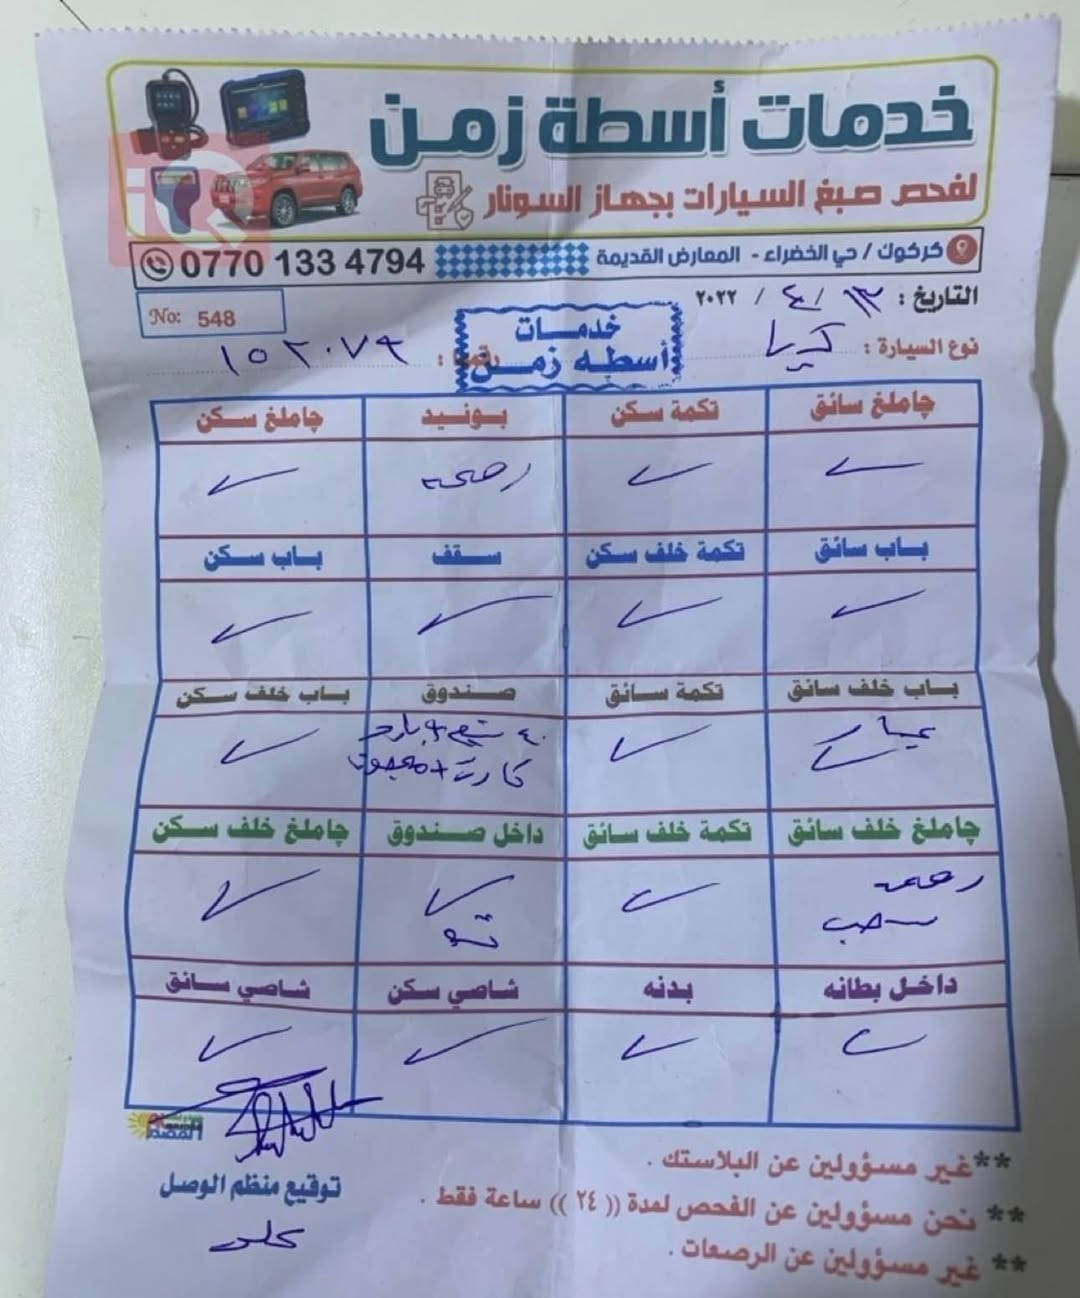 خدمات أسطة زمن
لفحص صبغ السيارات بجهاز السونار
iQ
كركوك / حي الخضراء - المعارض القديمة
0770 133 4794
التاريخ : ١٣ / ٤ / ٢٠٢٢
No: 548
خدمات
أسطه زمن
نوع السيارة : كيا رقمها : ١٥٢٠٧٩
چاملغ سائق تكمة سكن بونيد چاملغ سكن
رصعه
باب سائق تكمة خلف سكن سقف باب سكن
باب خلف سائق تكمة سائق صندوق باب خلف سكن
٤٠ سم + بارد
كارت + معجون
چاملغ خلف سائق تكمة خلف سائق داخل صندوق چاملغ خلف سكن
رصعه
سحب
داخل بطانه بدنه شاصي سكن شاصي سائق
توقيع منظم الوصل
**غير مسؤولين عن البلاستك .
** نحن مسؤولين عن الفحص لمدة (( ٢٤ )) ساعة فقط .
** غير مسؤولين عن الرصعات .